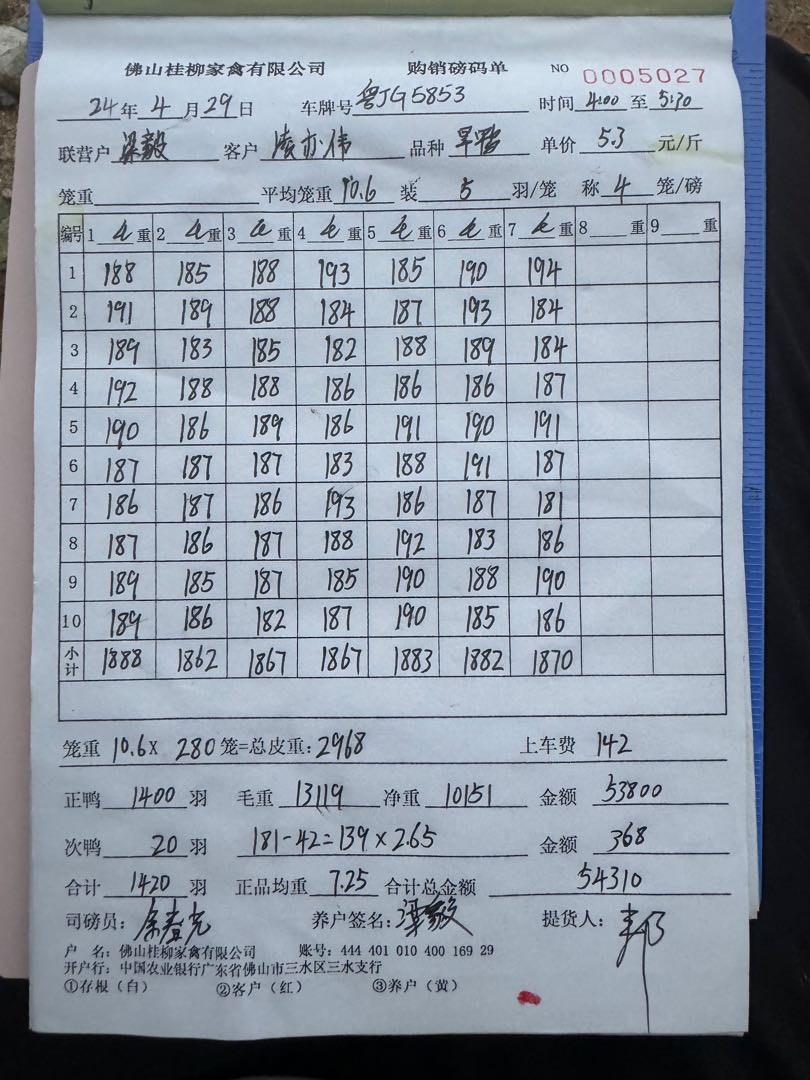 佛山桂柳家禽有限公司 购销磅码单 NO 0005027
24年4月29日 车牌号粤JG5853 时间4:00至5:30
联营户梁毅 客户凌亦伟 品种旱鸭 单价5.3元/斤
笼重 平均笼重10.6装5羽/笼 称4笼/磅
编号 1毛重 2毛重 3毛重 4毛重 5毛重 6毛重 7毛重 8重 9重
1 188 185 188 193 185 190 194
2 191 189 188 184 187 193 184
3 189 183 185 182 188 189 184
4 192 188 188 186 186 186 187
5 190 186 189 186 191 190 191
6 187 187 187 183 188 191 187
7 186 187 186 193 186 187 181
8 187 186 187 188 192 183 186
9 189 185 187 185 190 188 190
10 189 186 182 187 190 185 186
小计 1888 1862 1867 1867 1883 1882 1870
笼重10.6×280笼=总皮重:2968 上车费142
正鸭1400羽 毛重13119 净重10151 金额53800
次鸭20羽 181-42=139×2.65 金额368
合计1420羽 正品均重7.25 合计总金额54310
司磅员: 养户签名:梁毅 提货人:
户 名:佛山桂柳家禽有限公司 账号:444 401 010 400 169 29
开户行:中国农业银行广东省佛山市三水区三水支行
①存根(白) ②客户(红) ③养户(黄)